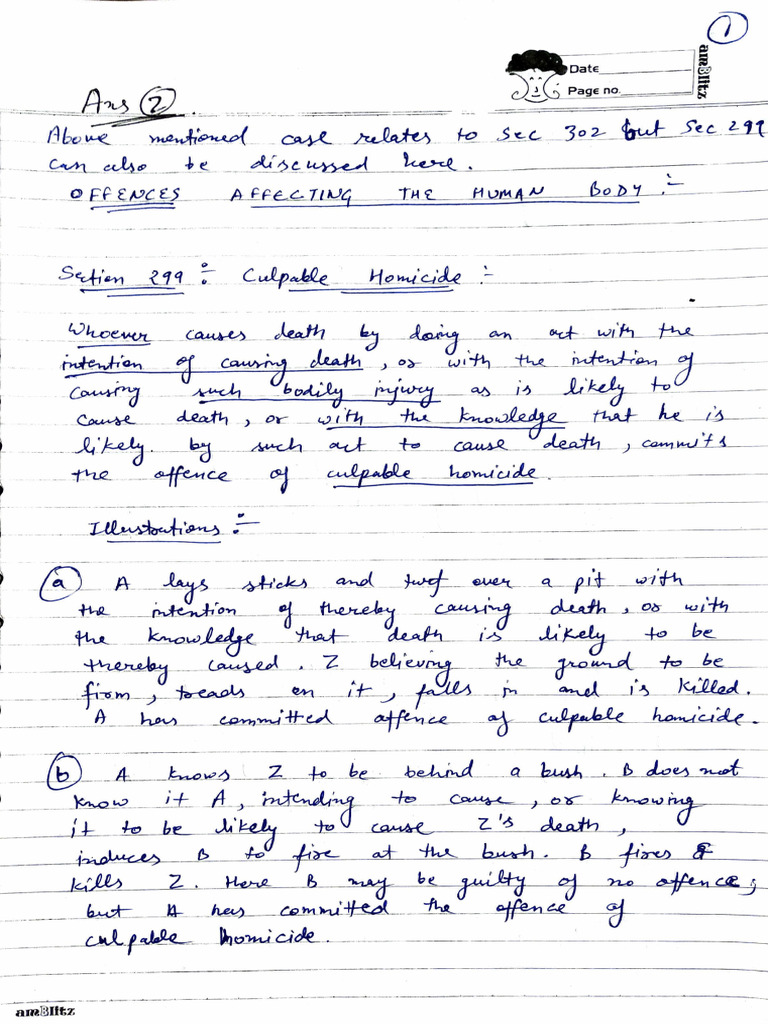 1
Date
Page no.
am3litz
Ans 2.
Above mentioned case relates to Sec 302 but Sec 299
can also be discussed here.
OFFENCES AFFECTING THE HUMAN BODY :-
Section 299 :- Culpable Homicide :-
Whoever causes death by doing an act with the
intention of causing death, or with the intention of
causing such bodily injury as is likely to
cause death, or with the knowledge that he is
likely. by such act to cause death, commits
the offence of culpable homicide.
Illustrations :-
a A lays sticks and turf over a pit with
the intention of thereby causing death, or with
the knowledge that death is likely to be
thereby caused. Z believing the ground to be
firm, treads on it, falls in and is killed.
A has committed offence of culpable homicide.
b A knows Z to be behind a bush. B does not
know it A, intending to cause, or knowing
it to be likely to cause Z's death,
induces B to fire at the bush. B fires &
kills Z. Here B may be guilty of no offence;
but A has committed the offence of
culpable homicide.
am3litz